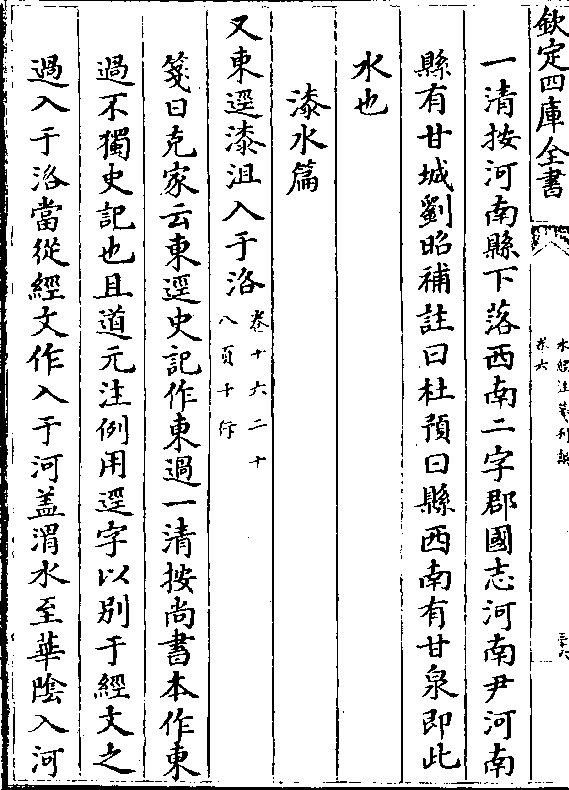 欽定四庫全書
水經注箋刊誤
卷六
三六
一清按河南縣下落西南二字郡國志河南尹河南
縣有甘城劉昭補註曰杜預曰縣西南有甘泉即此
水也
漆水篇
又東逕漆沮入于洛
卷十六二十
八頁十行
箋曰克家云東逕史記作東過一清按尚書本作東
過不獨史記也且道元注例用逕字以別于經文之
過入于洛當從經文作入于河盖渭水至華陰入河